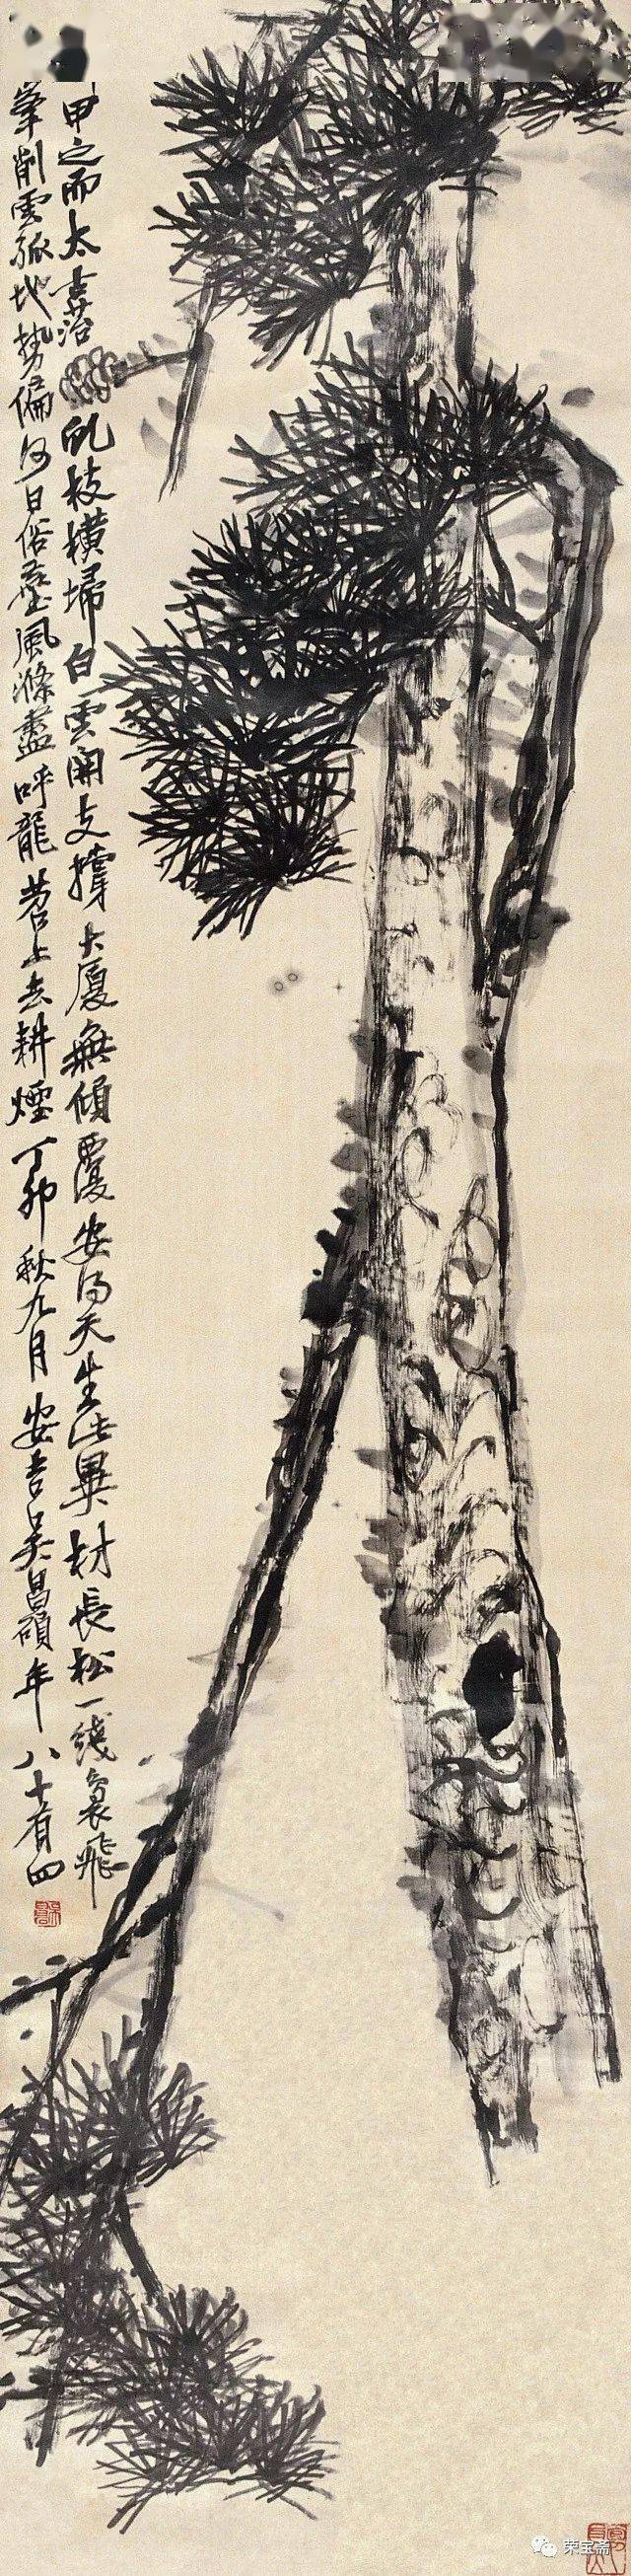 甲之而太古苔虬枝橫掃白雲開支撐大廈無傾覆安得天生此異材長松一綫裊飛
筆削雲孤地勢偏何日俗塵風滌盡呼龍苕上去耕煙丁卯秋九月安吉吳昌碩年八十有四
荣宝斋